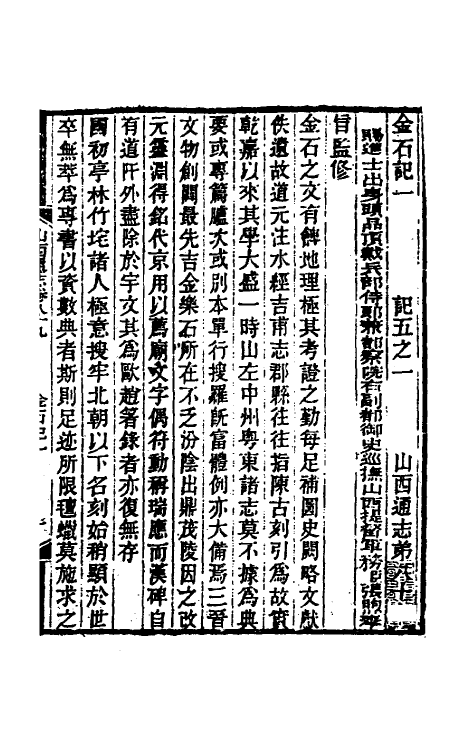 金石記一 記五之一 山西通志第
賜進士出身頭品頂戴兵部侍郎兼都察院右副都御史巡撫山西提督軍務張煦奉
旨監修
金石之文有裨地理極其考證之勤每足補圖史闕略文獻
佚遺故道元注水經吉甫志郡縣往往指陳古刻引為故實
乾嘉以來其學大盛一時山左中州粵東諸志莫不據為典
要或專篇臚大或別本單行搜羅旣富體例亦大備焉三晉
文物創闢最先吉金樂石所在不乏汾陰出鼎茂陵因之改
元靈淵得銘代京用以舊廟文字偶符動稱瑞應而漢碑自
有道阡外盡除於宇文其為歐趙箸錄者亦復無存
國初亭林竹垞諸人極意搜牢北朝以下名刻始稍顯於世
卒無萃為專書以資數典者斯則足迹所限氊蠟莫施求之
山西通志卷八九 金石記一